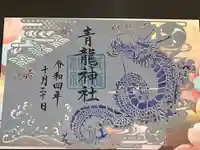 青龍神社
令和四年
十月二十日